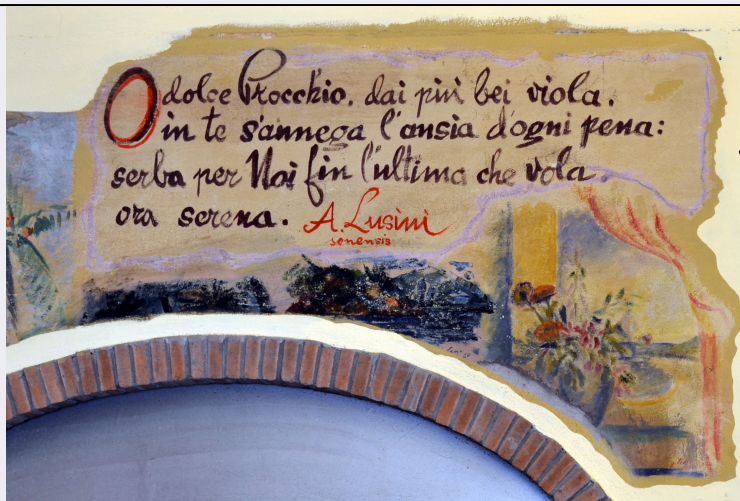 O dolce Procchio, dai più bei viola.
in te s'annega l'ansia d'ogni pena:
serba per Noi fin l'ultima che vola.
ora serena. A. Lusini
senensis